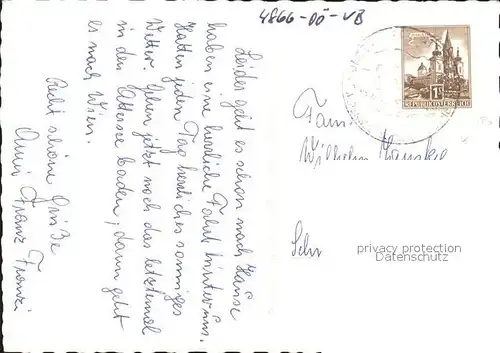 4866-OÖ-VB
Leider geht es schon nach Hause
haben eine herrliche Fahrt hinter uns.
Hatten jeden Tag herrliches sonniges
Wetter. Gehen jetzt noch das letztemal
in den Attersee baden, dann geht
es nach Wien.
Recht schöne Grüße
Franz Franzi
1S
REPUBLIK ÖSTERREICH
Fam.
Wilhelm
privacy protection
Datenschutz